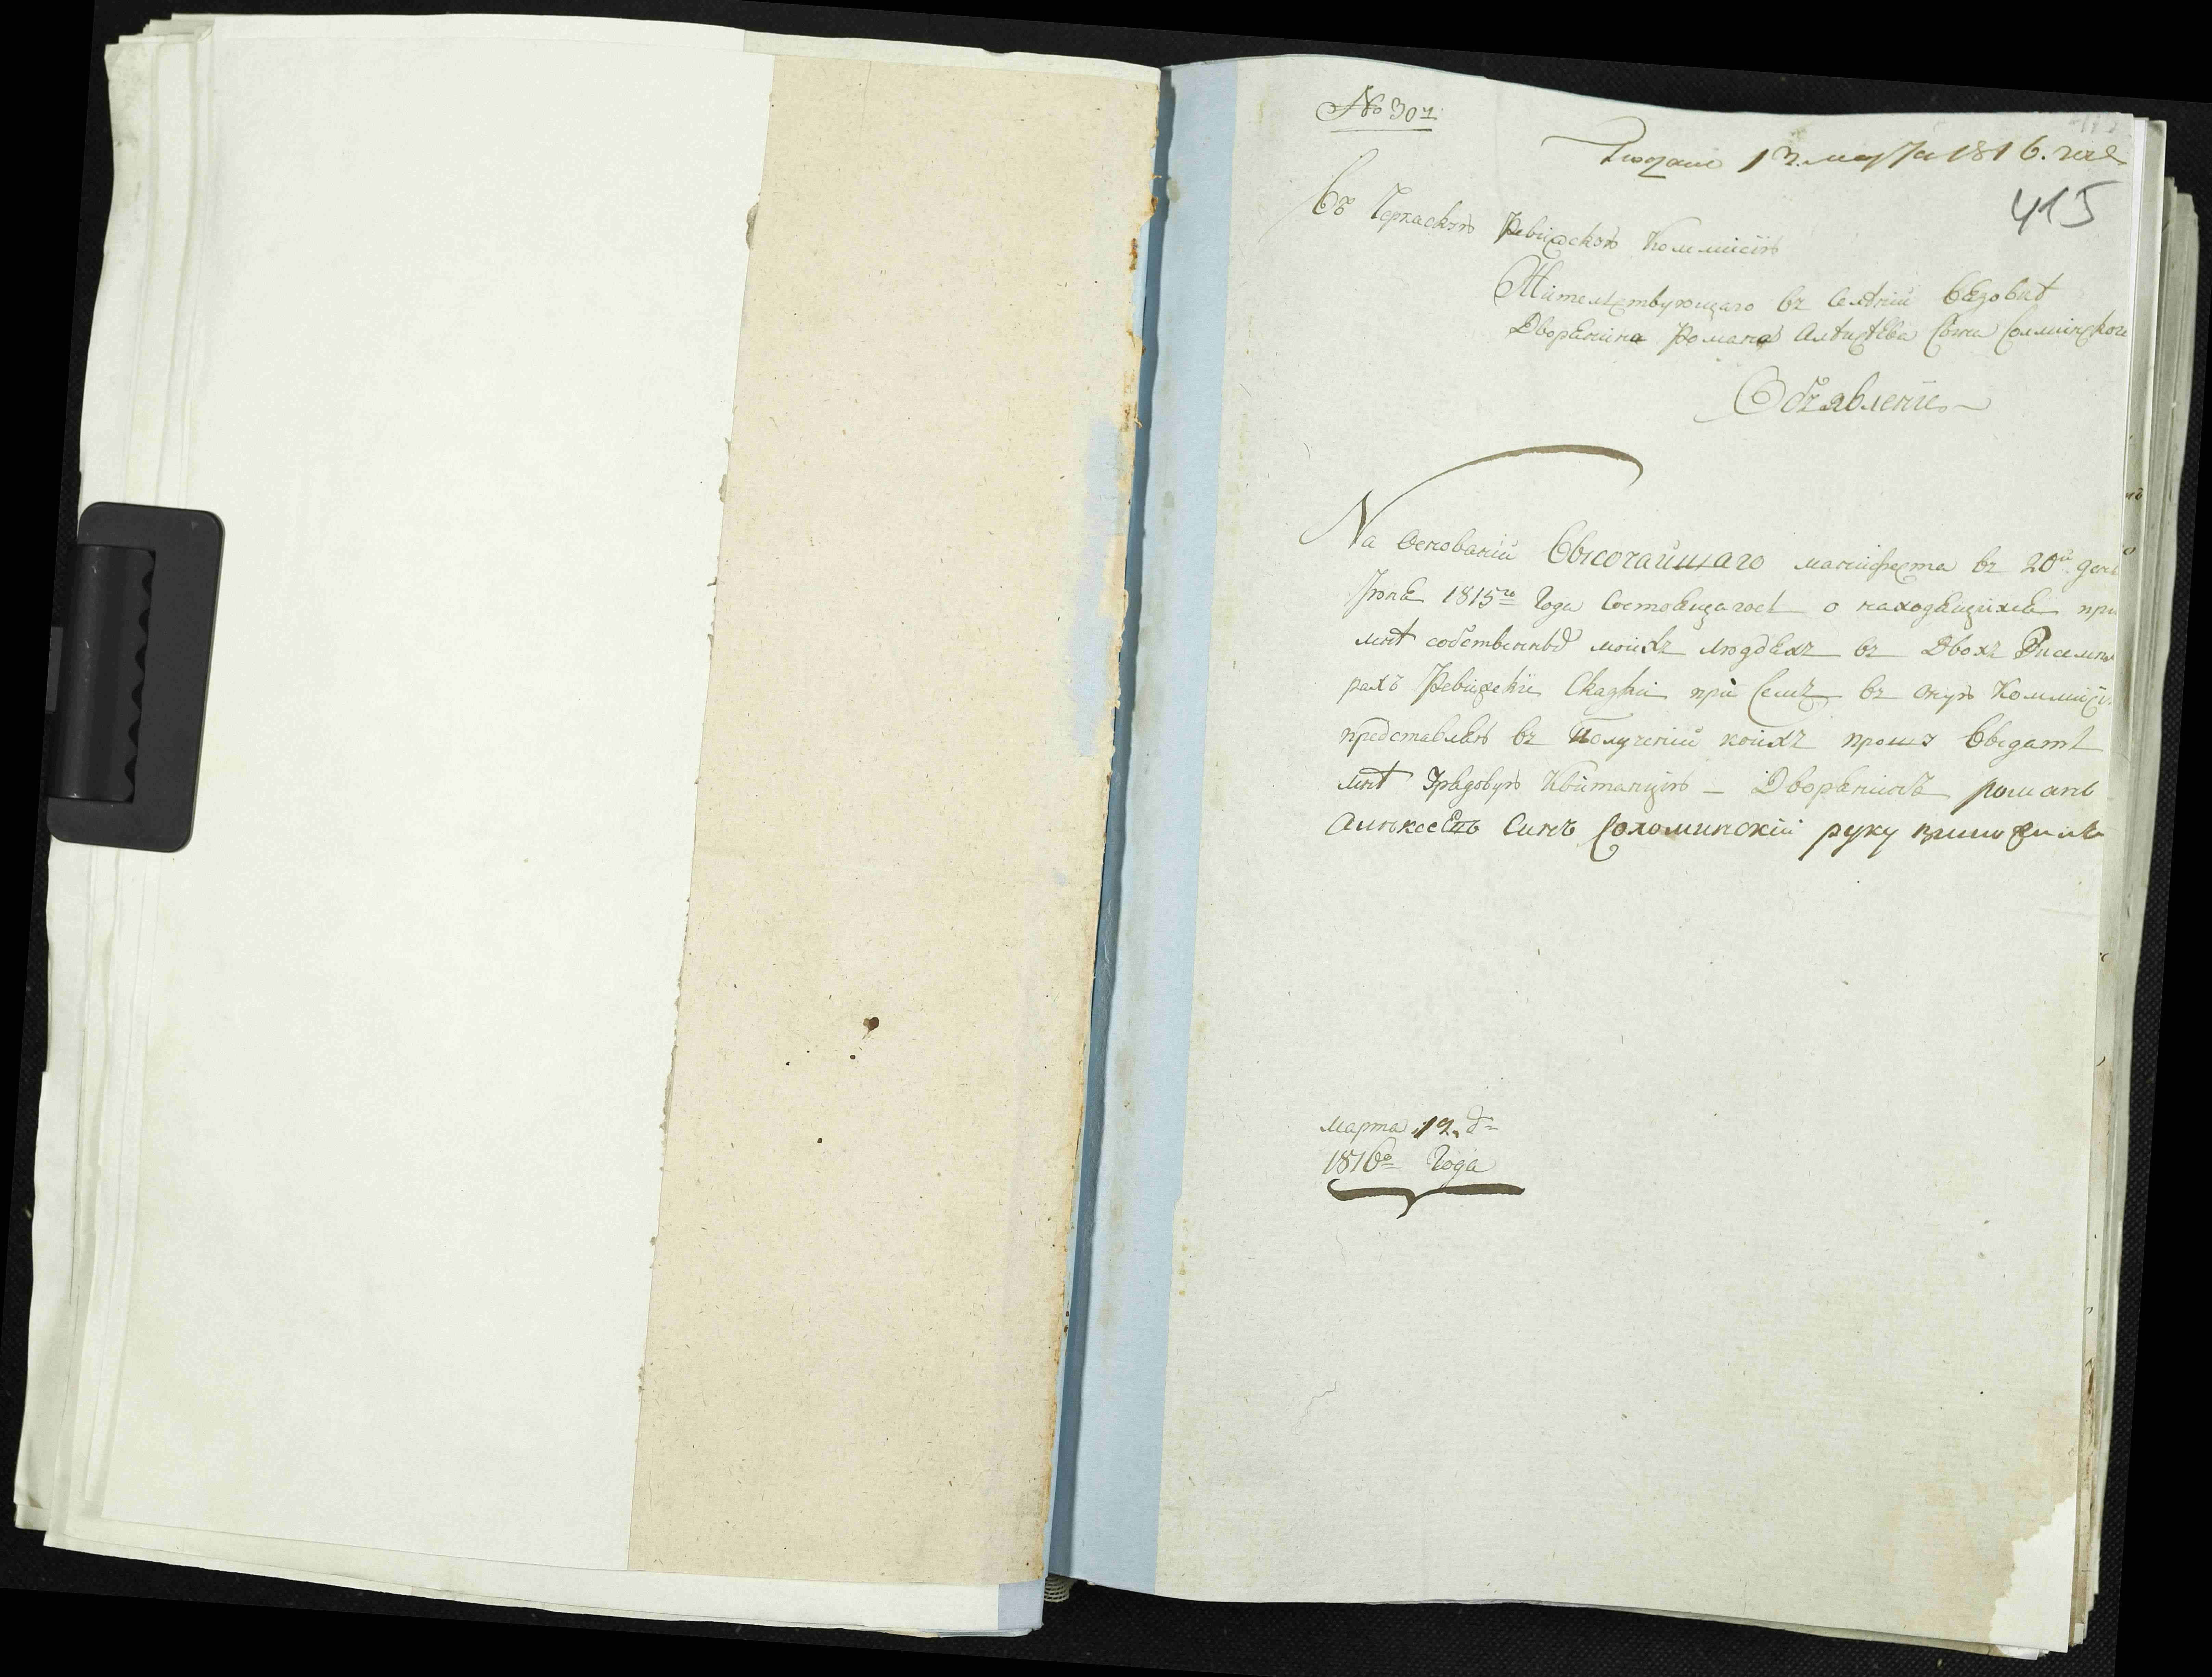 № 301
Подано 13. марта 1816. года
415
Въ Черкаскую Ревизскую Коммисїю
Жителствующаго въ Селѣнїи Вязовкѣ
Дворянина Романа Алѣксѣева Сына Соломинского
Объявленїе
На Основанїи Высочайшаго манифеста въ 20й день
Іюня 1815го Года Состоявшагося о находящихся при
мнѣ собственныхъ моихъ людяхъ въ Двохъ Екземпля
рахъ Ревизскїе Сказки при Семъ въ оную Коммисїю
представляю въ Полученїи коихъ прошу Выдать
мнѣ Врядовую Квитанцїю — Дворянинъ романъ
Алѣксеевъ Синъ Соломинскїй руку приложилъ
марта 13. д:
1816го Года